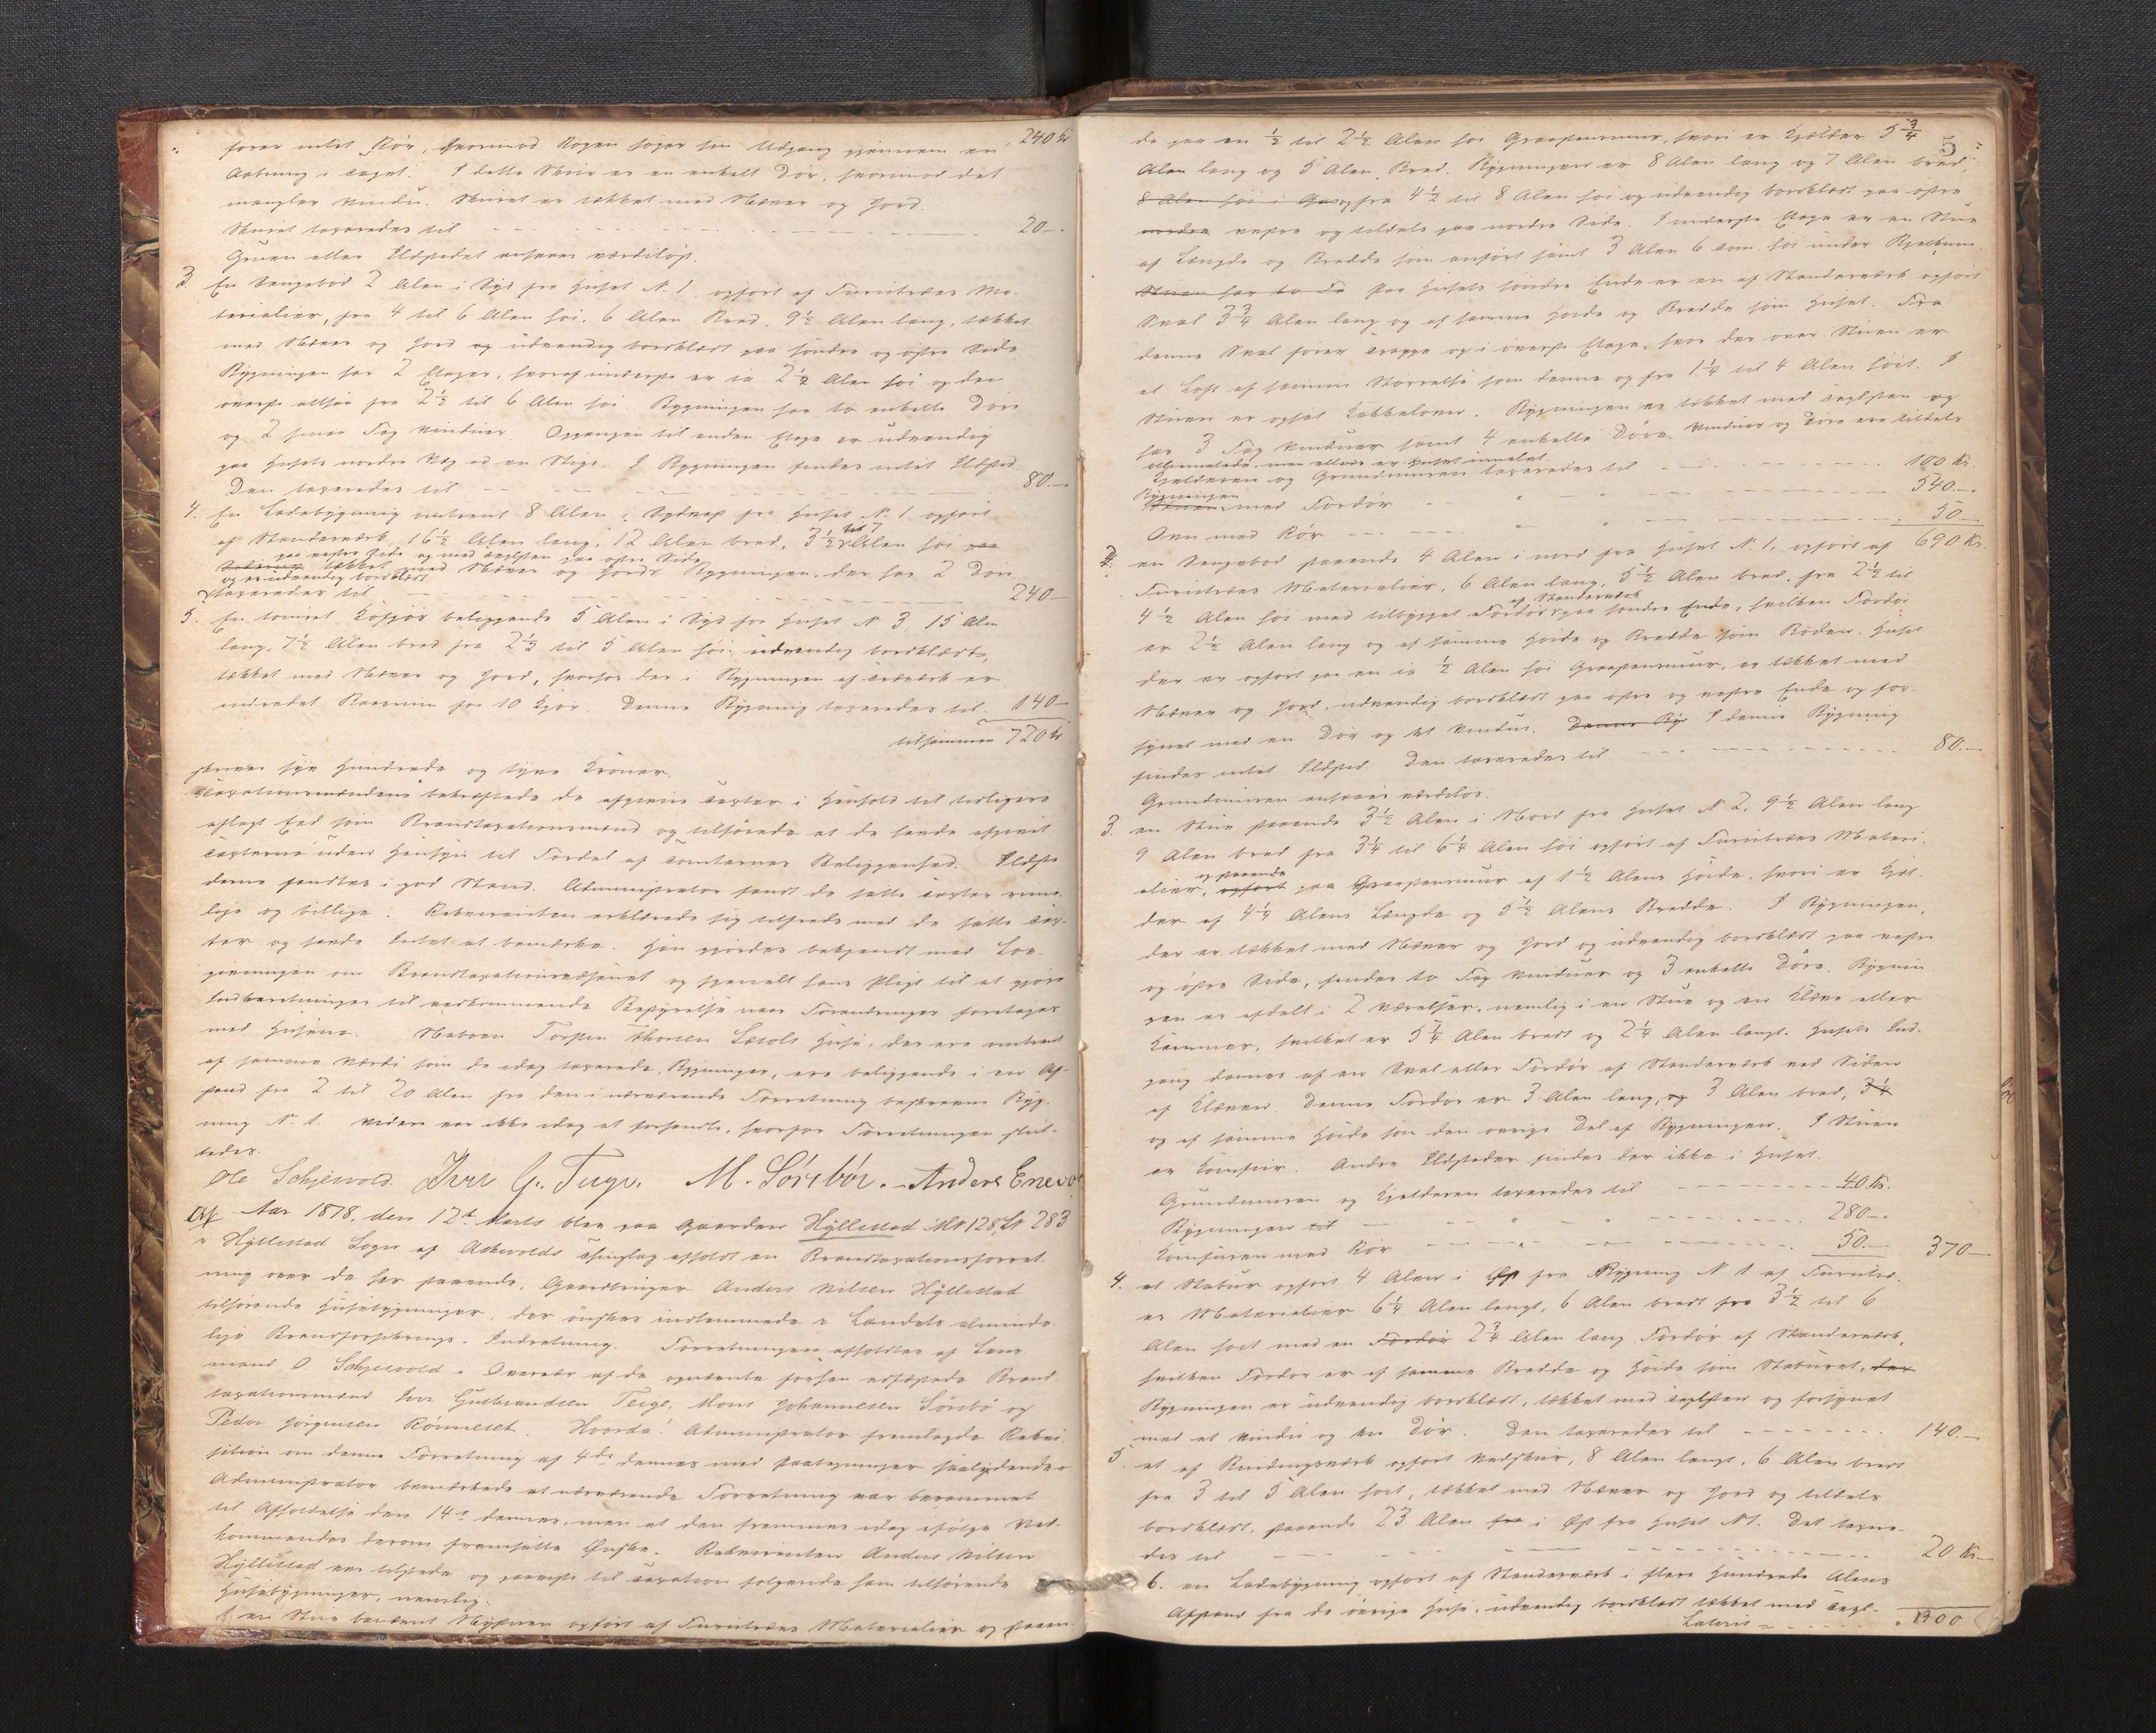 fører intet Rør, hvorimod Røgen søger sin Udgang gjennem en 240 Kr
Aabning i Taget. I dette Skur er en enkelt Dør, hvorimod det
mangler Vindu. Skuret er tækket med Næver og Jord.
Skuret taxeredes til 20 —
Gruen eller Ildstedet ansaaes værdiløst.
3. En Sengebod 2 Alen i Syd fra Huset N. 1 opført af Furutræes Ma-
terialier, fra 4 til 6 Alen høi, 6 Alen Bred, 9½ Alen lang, tækket
med Næver og Jord og udvendig bordklædt paa søndre og østre Side
Bygningen har 2 Etager, hvoraf underste er ca 2½ Alen høi og den
øverste altsaa fra 2½ til 6 Alen høi. Bygningen har to enkelte Døre
og 2 smaa Fag Vinduer. Opgangen til anden Etage er udvendig
paa Husets nordre Væg ad en Stige. I Bygningen findes intet Ildsted
Den taxeredes til 80 —
4. En Ladebygning omtrent 8 Alen i Sydvest fra Huset N. 1 opført
af Standerværk, 16½ Alen lang, 12 Alen bred, 3½ til 7 Alen høi
paa vestre Side og med Taglsten paa østre Side
tækket med Næver og Jord. Bygningen, der har 2 Døre
og er udvendig bordklædt
taxeredes til 240 —
5. En tømret Kofjøs beliggende 5 Alen i Syd for Huset N 3, 15 Alen
lang, 7½ Alen bred fra 2½ til 5 Alen høi, udvendig bordklædt,
tækket med Næver og Jord, hvorhos der i Bygningen af Træværk er
indredet Baasrum for 10 Kjør. Denne Bygning taxeredes til 140 —
tilsammen 720 Kr
skriver syv Hundrede og tyve Kroner.
Taxationsmændene bekræftede de afgivne Taxter i Henhold til tidligere
aflagt Eed som Brandtaxationsmænd og tilføiede at de havde afgivet
Taxterne uden Hensyn til Fordel af Tomternes Beliggenhed. Ildste-
derne fandtes i god Stand. Administrator fandt de satte Taxter rime-
lige og billige. Rekvirenten erklærede sig tilfreds med de satte Tax-
ter og havde Intet at bemærke. Han gjordes bekjendt med Lov-
givningen om Brandtaxationsvæsenet og specielt hans Pligt til at gjøre
Indberetninger til vedkommende Bestyrelse naar Forandringer foretages
med Husene. Naboen Torsten Thorsen Huse, der ere omtrent
af samme Værdi som de idag taxerede Bygninger, ere beliggende i en Af-
stand fra 2 til 20 Alen fra den i nærværende Forretning beskrevne Byg-
ning N. 1. Videre var ikke idag at forhandle, hvorfor Forretningen slut-
tedes.
Ole Schjesvold Iver G. Teige. M. Sørebø. Anders Enevo
Aar 1878, den 12te Marts blev paa Gaarden Hyllestad Mt 128, Lt 283
i Hyllestad Sogn af Askevolds Thinglag afholdt en Brandtaxationsforret-
ning over de her staaende, Gaardbruger Anders Nilsen Hyllestad
tilhørende Husebygninger, der ønskes indlemmede i Landets alminde-
lige Brandforsikrings-Indretning. Forretningen afholdtes af Lens-
mand O. Schjesvold i Overvær af de opnævnte forhen edfæstede Brand-
taxationsmænd Iver Gulbrandsen Teige, Mons Johannesen Sørebø og
Peder Jørgensen Rønneset. Hvorda: Administrator fremlagde Rekvi-
sition om denne Forretning af 4de dennes med Paategninger saalydende
Administrator bemærkede at nærværende Forretning var berammet
til Afholdelse den 14de dennes, men at den fremmes idag ifølge Ved-
kommendes derom fremsatte Ønske. Rekvirenten Anders Nilsen
Hyllestad var tilstede og paaviste til Taxation følgende ham tilhørende
Husebygninger, nemlig:
1 en Stue benævnt Nystuen opført af Furutræes Materialier og staaen-
5
de paa en ½ til 2½ Alen høi Graastensmur, hvori er Kjelder 5¾
Alen lang og 5 Alen Bred. Bygningen er 8 Alen lang og 7 Alen bred,
8 Alen høi i og fra 4½ til 8 Alen høi og udvendig bordklædt paa østre
nordre vestre og tildels paa nordre Side. I underste Etage er en Stue
af Længde og Bredde som anført samt 3 Alen 6 Tom. høi under Bjelkerne.
Stuen har to Fa Paa Husets søndre Ende er en af Standerværk opført
Sval 3¾ Alen lang og af samme Høide og Bredde som Huset. Fra
denne Sval fører Trappe op i øverste Etage, hvor der over Stuen er
et Loft af samme Størrelse som denne og fra 1¼ til 4 Alen høit. I
Stuen er opsat Kakkelovn. Bygningen er tækket med Taglsten og
har 3 Fag Vinduer samt 4 enkelte Døre. Vinduer og Døre ere tildels
oliemalede, men ellers er Huset umalet.
Kjelderen og Grundmuren taxeredes til 100 Kr.
Bygningen
Stuen med Fordør " " 540 —
Ovn med Rør " " 50 —
690 Kr.
2. en Sengebod staaende 4 Alen i nord fra Huset N. 1, opført af
Furutræes Materialier, 6 Alen lang, 5½ Alen bred, fra 2½ til
af Standerværk
4½ Alen høi med tilbygget Fordør paa søndre Ende, hvilken Fordør
er 2½ Alen lang og af samme Høide og Bredde som Boden. Huset
der er opført paa en ca ½ Alen høi Graastensmuur, er tækket med
Næver og Jord, udvendig bordklædt paa østre og vestre Ende og for-
synet med en Dør og et Vindue. Denne Byg I denne Bygning
findes intet Ildsted. Den taxeredes til 80 —
Grundmuren ansaaes værdiløs.
3. en Stue staaende 3½ Alen i Nord fra Huset N 2, 9½ Alen lang
9 Alen bred fra 3¼ til 6¼ Alen høi opført af Furutræes Materi-
og staaende
alier, opført paa Graastensmuur af 1½ Alens Høide, hvori er Kjel-
der af 4¼ Alens Længde og 5½ Alens Bredde. I Bygningen,
der er tækket med Næver og Jord og udvendig bordklædt paa vestre
og østre Side, findes to Fag Vinduer og 3 enkelte Døre. Bygnin-
gen er afdelt i 2 Værelser, nemlig i en Stue og en Kleve eller
Kammer, hvilket er 5¼ Alen bredt og 2¼ Alen langt. Husets Ind-
gang dannes af en Sval eller Fordør af Standerværk ved Siden
af Kleven. Denne Fordør er 3 Alen lang, og 3 Alen bred, 3¼
og af samme Høide som den øvrige Del af Bygningen. I Stuen
er Komfur. Andre Ildsteder findes der ikke i Huset.
Grundmuren og Kjelderen taxeredes til 40 Kr.
Bygningen til " " 280 —
Komfuren med Rør " 50 — 370 —
4. et Stabur opført 4 Alen i Øst fra Bygning N 1 af Furutræ-
es Materialier 6¼ Alen langt, 6 Alen bredt fra 3½ til 6
Alen høit med en Fordør 2¾ Alen lang Fordør af Standerværk,
hvilken Fordør er af samme Bredde og Høide som Staburet, der
Bygningen er udvendig bordklædt, tækket med Taglsten og forsynet
med et Vindu og en Dør. Den taxeredes til 140 —
5. et af Bindingsværk opført Vedskur, 8 Alen langt, 6 Alen bredt
fra 3 til 5 Alen høit, tækket med Næver og Jord og tildels
bordklædt, staaende 23 Alen fra i Øst fra Huset N1. Det taxere-
des til 20 Kr —
6. en Ladebygning opført af Standerværk i flere Hundrede Alens
Afstand fra de øvrige Huse, udvendig bordklædt tækket med Tagl-
Lateris 1300